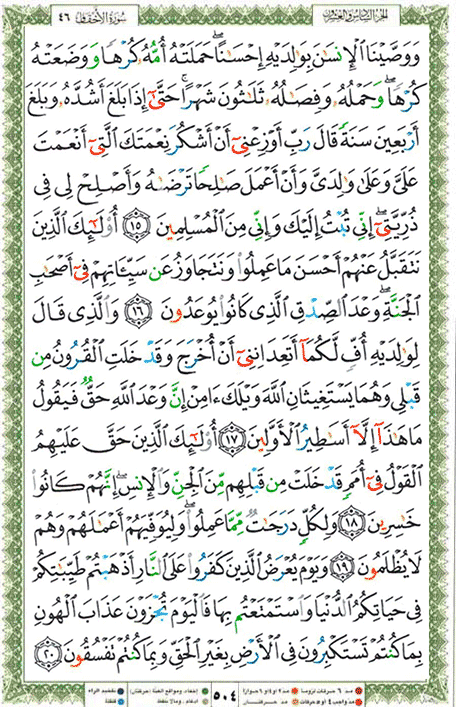 سُورَةُ الأَحْقَاف ٤٦ الجزء السادس والعشرون
وَوَصَّيْنَا ٱلْإِنسَٰنَ بِوَٰلِدَيْهِ إِحْسَٰنًا ۖ حَمَلَتْهُ أُمُّهُۥ كُرْهًا وَوَضَعَتْهُ
كُرْهًا ۖ وَحَمْلُهُۥ وَفِصَٰلُهُۥ ثَلَٰثُونَ شَهْرًا ۚ حَتَّىٰٓ إِذَا بَلَغَ أَشُدَّهُۥ وَبَلَغَ
أَرْبَعِينَ سَنَةً قَالَ رَبِّ أَوْزِعْنِىٓ أَنْ أَشْكُرَ نِعْمَتَكَ ٱلَّتِىٓ أَنْعَمْتَ
عَلَىَّ وَعَلَىٰ وَٰلِدَىَّ وَأَنْ أَعْمَلَ صَٰلِحًا تَرْضَىٰهُ وَأَصْلِحْ لِى فِى
ذُرِّيَّتِىٓ ۖ إِنِّى تُبْتُ إِلَيْكَ وَإِنِّى مِنَ ٱلْمُسْلِمِينَ ١٥ أُو۟لَٰٓئِكَ ٱلَّذِينَ
نَتَقَبَّلُ عَنْهُمْ أَحْسَنَ مَا عَمِلُوا۟ وَنَتَجَاوَزُ عَن سَيِّـَٔاتِهِمْ فِىٓ أَصْحَٰبِ
ٱلْجَنَّةِ ۖ وَعْدَ ٱلصِّدْقِ ٱلَّذِى كَانُوا۟ يُوعَدُونَ ١٦ وَٱلَّذِى قَالَ
لِوَٰلِدَيْهِ أُفٍّ لَّكُمَآ أَتَعِدَانِنِىٓ أَنْ أُخْرَجَ وَقَدْ خَلَتِ ٱلْقُرُونُ مِن
قَبْلِى وَهُمَا يَسْتَغِيثَانِ ٱللَّهَ وَيْلَكَ ءَامِنْ إِنَّ وَعْدَ ٱللَّهِ حَقٌّ فَيَقُولُ
مَا هَٰذَآ إِلَّآ أَسَٰطِيرُ ٱلْأَوَّلِينَ ١٧ أُو۟لَٰٓئِكَ ٱلَّذِينَ حَقَّ عَلَيْهِمُ
ٱلْقَوْلُ فِىٓ أُمَمٍ قَدْ خَلَتْ مِن قَبْلِهِم مِّنَ ٱلْجِنِّ وَٱلْإِنسِ ۖ إِنَّهُمْ كَانُوا۟
خَٰسِرِينَ ١٨ وَلِكُلٍّ دَرَجَٰتٌ مِّمَّا عَمِلُوا۟ ۖ وَلِيُوَفِّيَهُمْ أَعْمَٰلَهُمْ وَهُمْ
لَا يُظْلَمُونَ ١٩ وَيَوْمَ يُعْرَضُ ٱلَّذِينَ كَفَرُوا۟ عَلَى ٱلنَّارِ أَذْهَبْتُمْ طَيِّبَٰتِكُمْ
فِى حَيَاتِكُمُ ٱلدُّنْيَا وَٱسْتَمْتَعْتُم بِهَا فَٱلْيَوْمَ تُجْزَوْنَ عَذَابَ ٱلْهُونِ
بِمَا كُنتُمْ تَسْتَكْبِرُونَ فِى ٱلْأَرْضِ بِغَيْرِ ٱلْحَقِّ وَبِمَا كُنتُمْ تَفْسُقُونَ ٢٠
٥٠٤